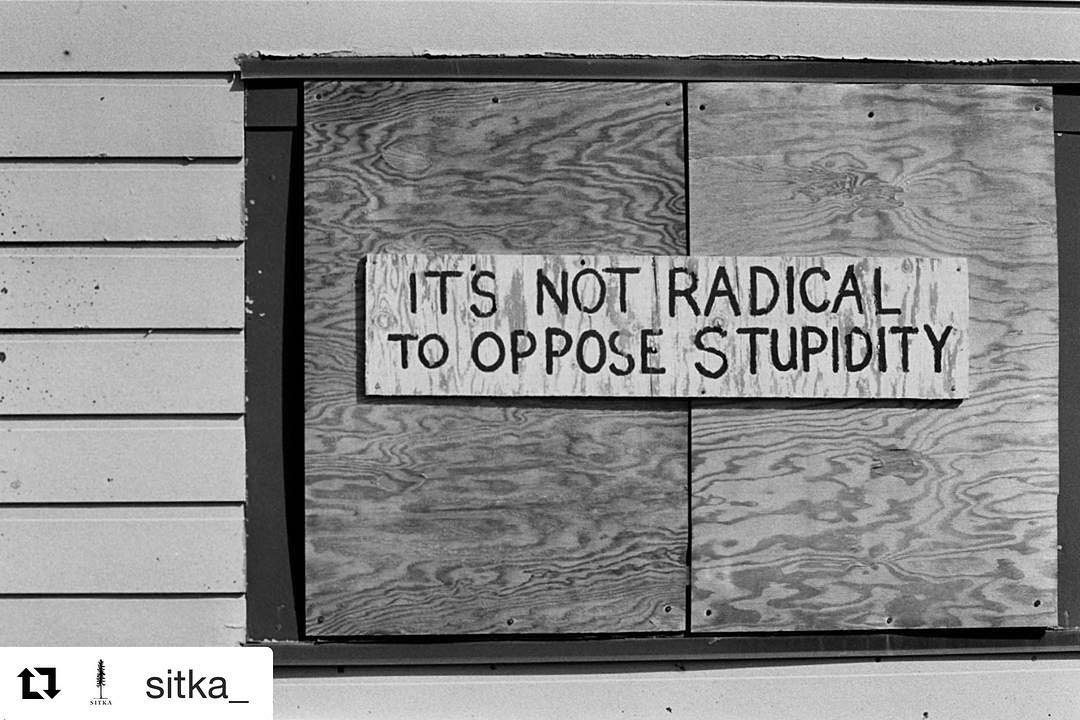 IT'S NOT RADICAL
TO OPPOSE STUPIDITY
SITKA
sitka_